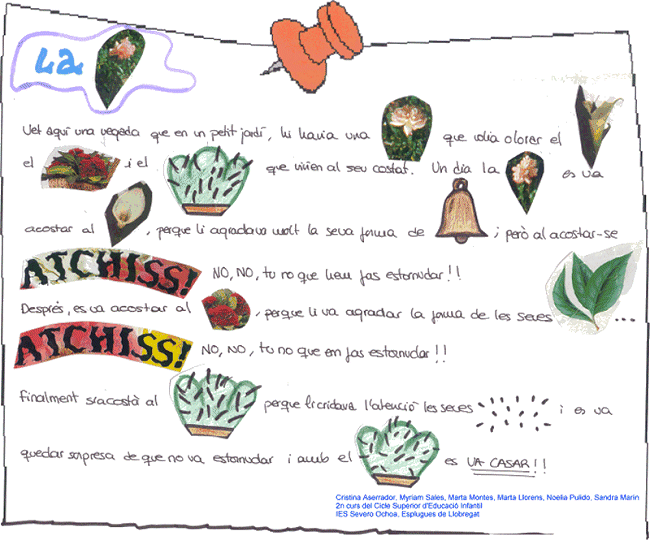 La
Vet aquí una vegada que en un petit jardí, hi havia una que volia olorar el
el i el que vivien al seu costat. Un dia la es va
acostar al , perque li agradava molt la seva forma de ; però al acostar-se
ATCHISS! NO, NO, tu no que hem fas estornudar!!
Després, es va acostar al , perque li va agradar la forma de les seves ...
ATCHISS! NO, NO, tu no que em fas estornudar!!
finalment s'acostà al perque li cridava l'atenció les seves i es va
quedar sorpresa de que no va estornudar i amb el es VA CASAR!!
Cristina Aserrador, Myriam Sales, Marta Montes, Marta Llorens, Noelia Pulido, Sandra Marin
2n curs del Cicle Superior d'Educació Infantil
IES Severo Ochoa, Esplugues de Llobregat